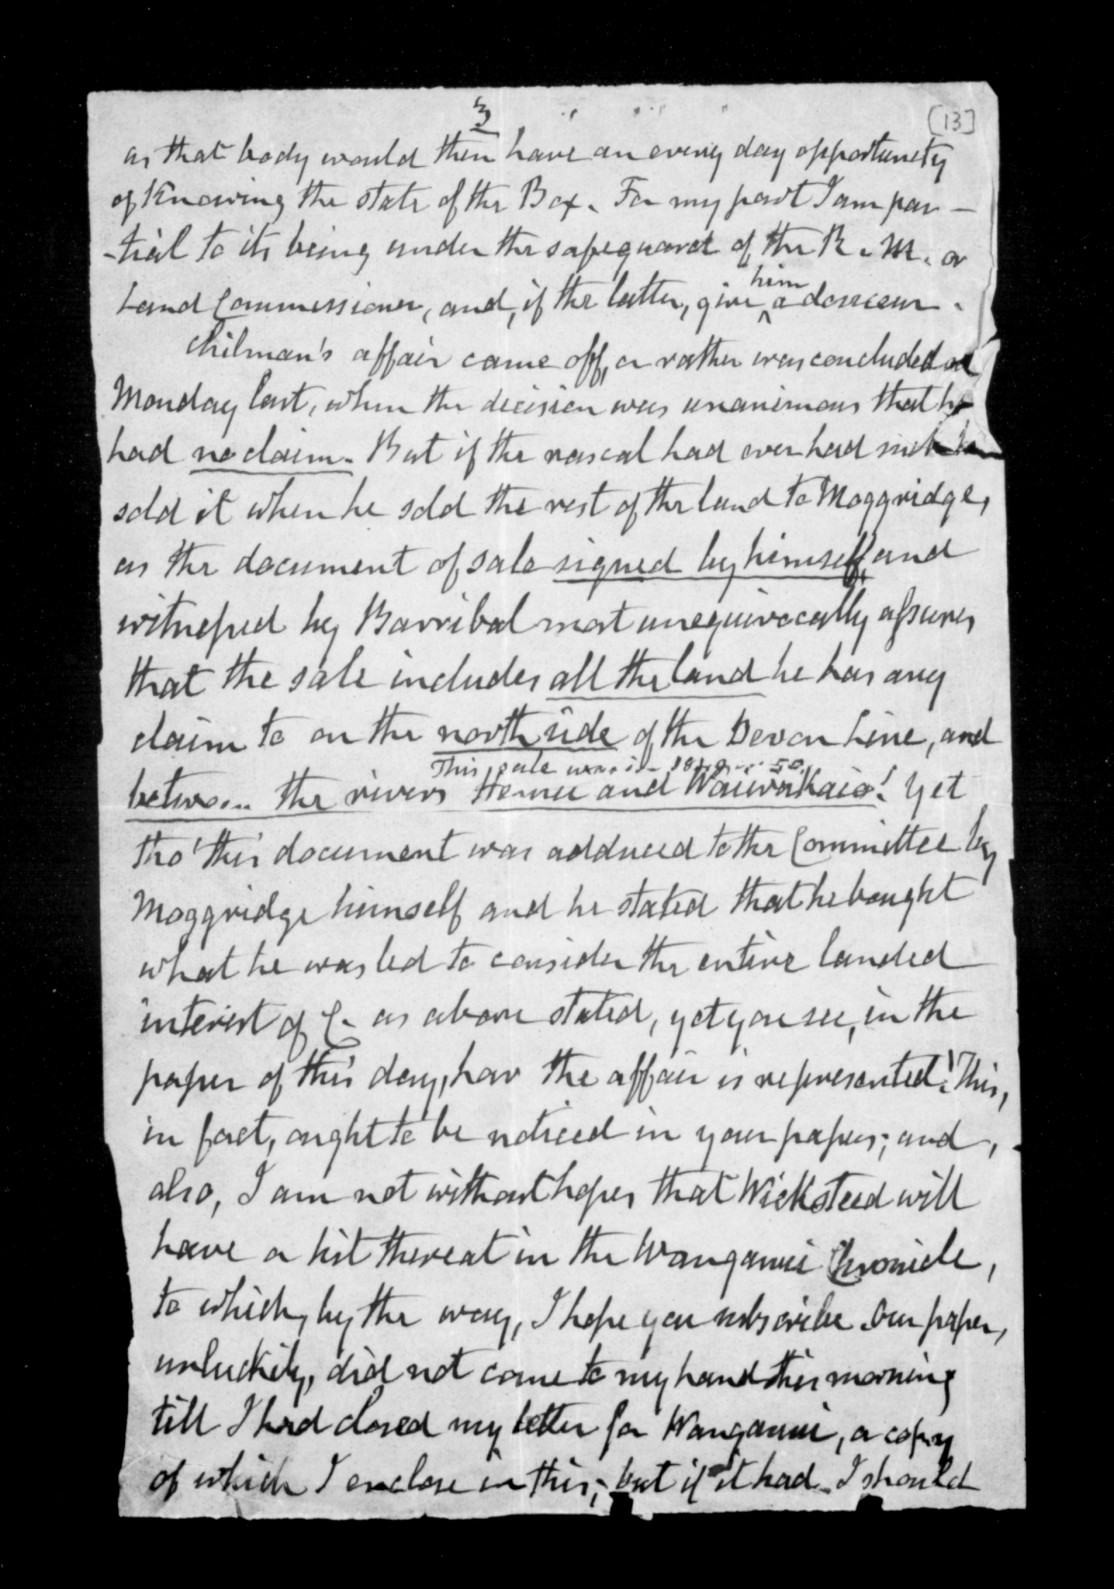 3
[13]
as that body would then have an every day opportunity
of knowing the state of the Box. For my part I am par-
-tial to its being under the safeguard of the R. M. or
him
Land Commissioner, and, if the latter, give a douceur.
Chilman's affair came off, or rather was concluded on
Monday last, when the decision was unanimous that he
had no claim. But if the rascal had ever had such he
sold it when he sold the rest of the land to Moggridge,
as the document of sale signed by himself, and
witnessed by Barribal most unequivocally assures
that the sale includes all the land he has any
claim to on the north side of the Devon Line, and
This sale was in 50
between the rivers Henui and Waiwakaio! Yet
tho' this document was adduced to the Committee by
Moggridge himself and he stated that he bought
what he was led to consider the entire landed
interest of C. as above stated, yet you see, in the
paper of this day, how the affair is represented! This,
in fact, ought to be noticed in your papers; and,
also, I am not without hopes that Wicksteed will
have a hit thereat in the Wanganui Chronicle,
to which, by the way, I hope you subscribe. Our paper,
unluckily, did not come to my hand this morning
till I had closed my letter for Wanganui, a copy
of which I enclose in this; but if it had I should